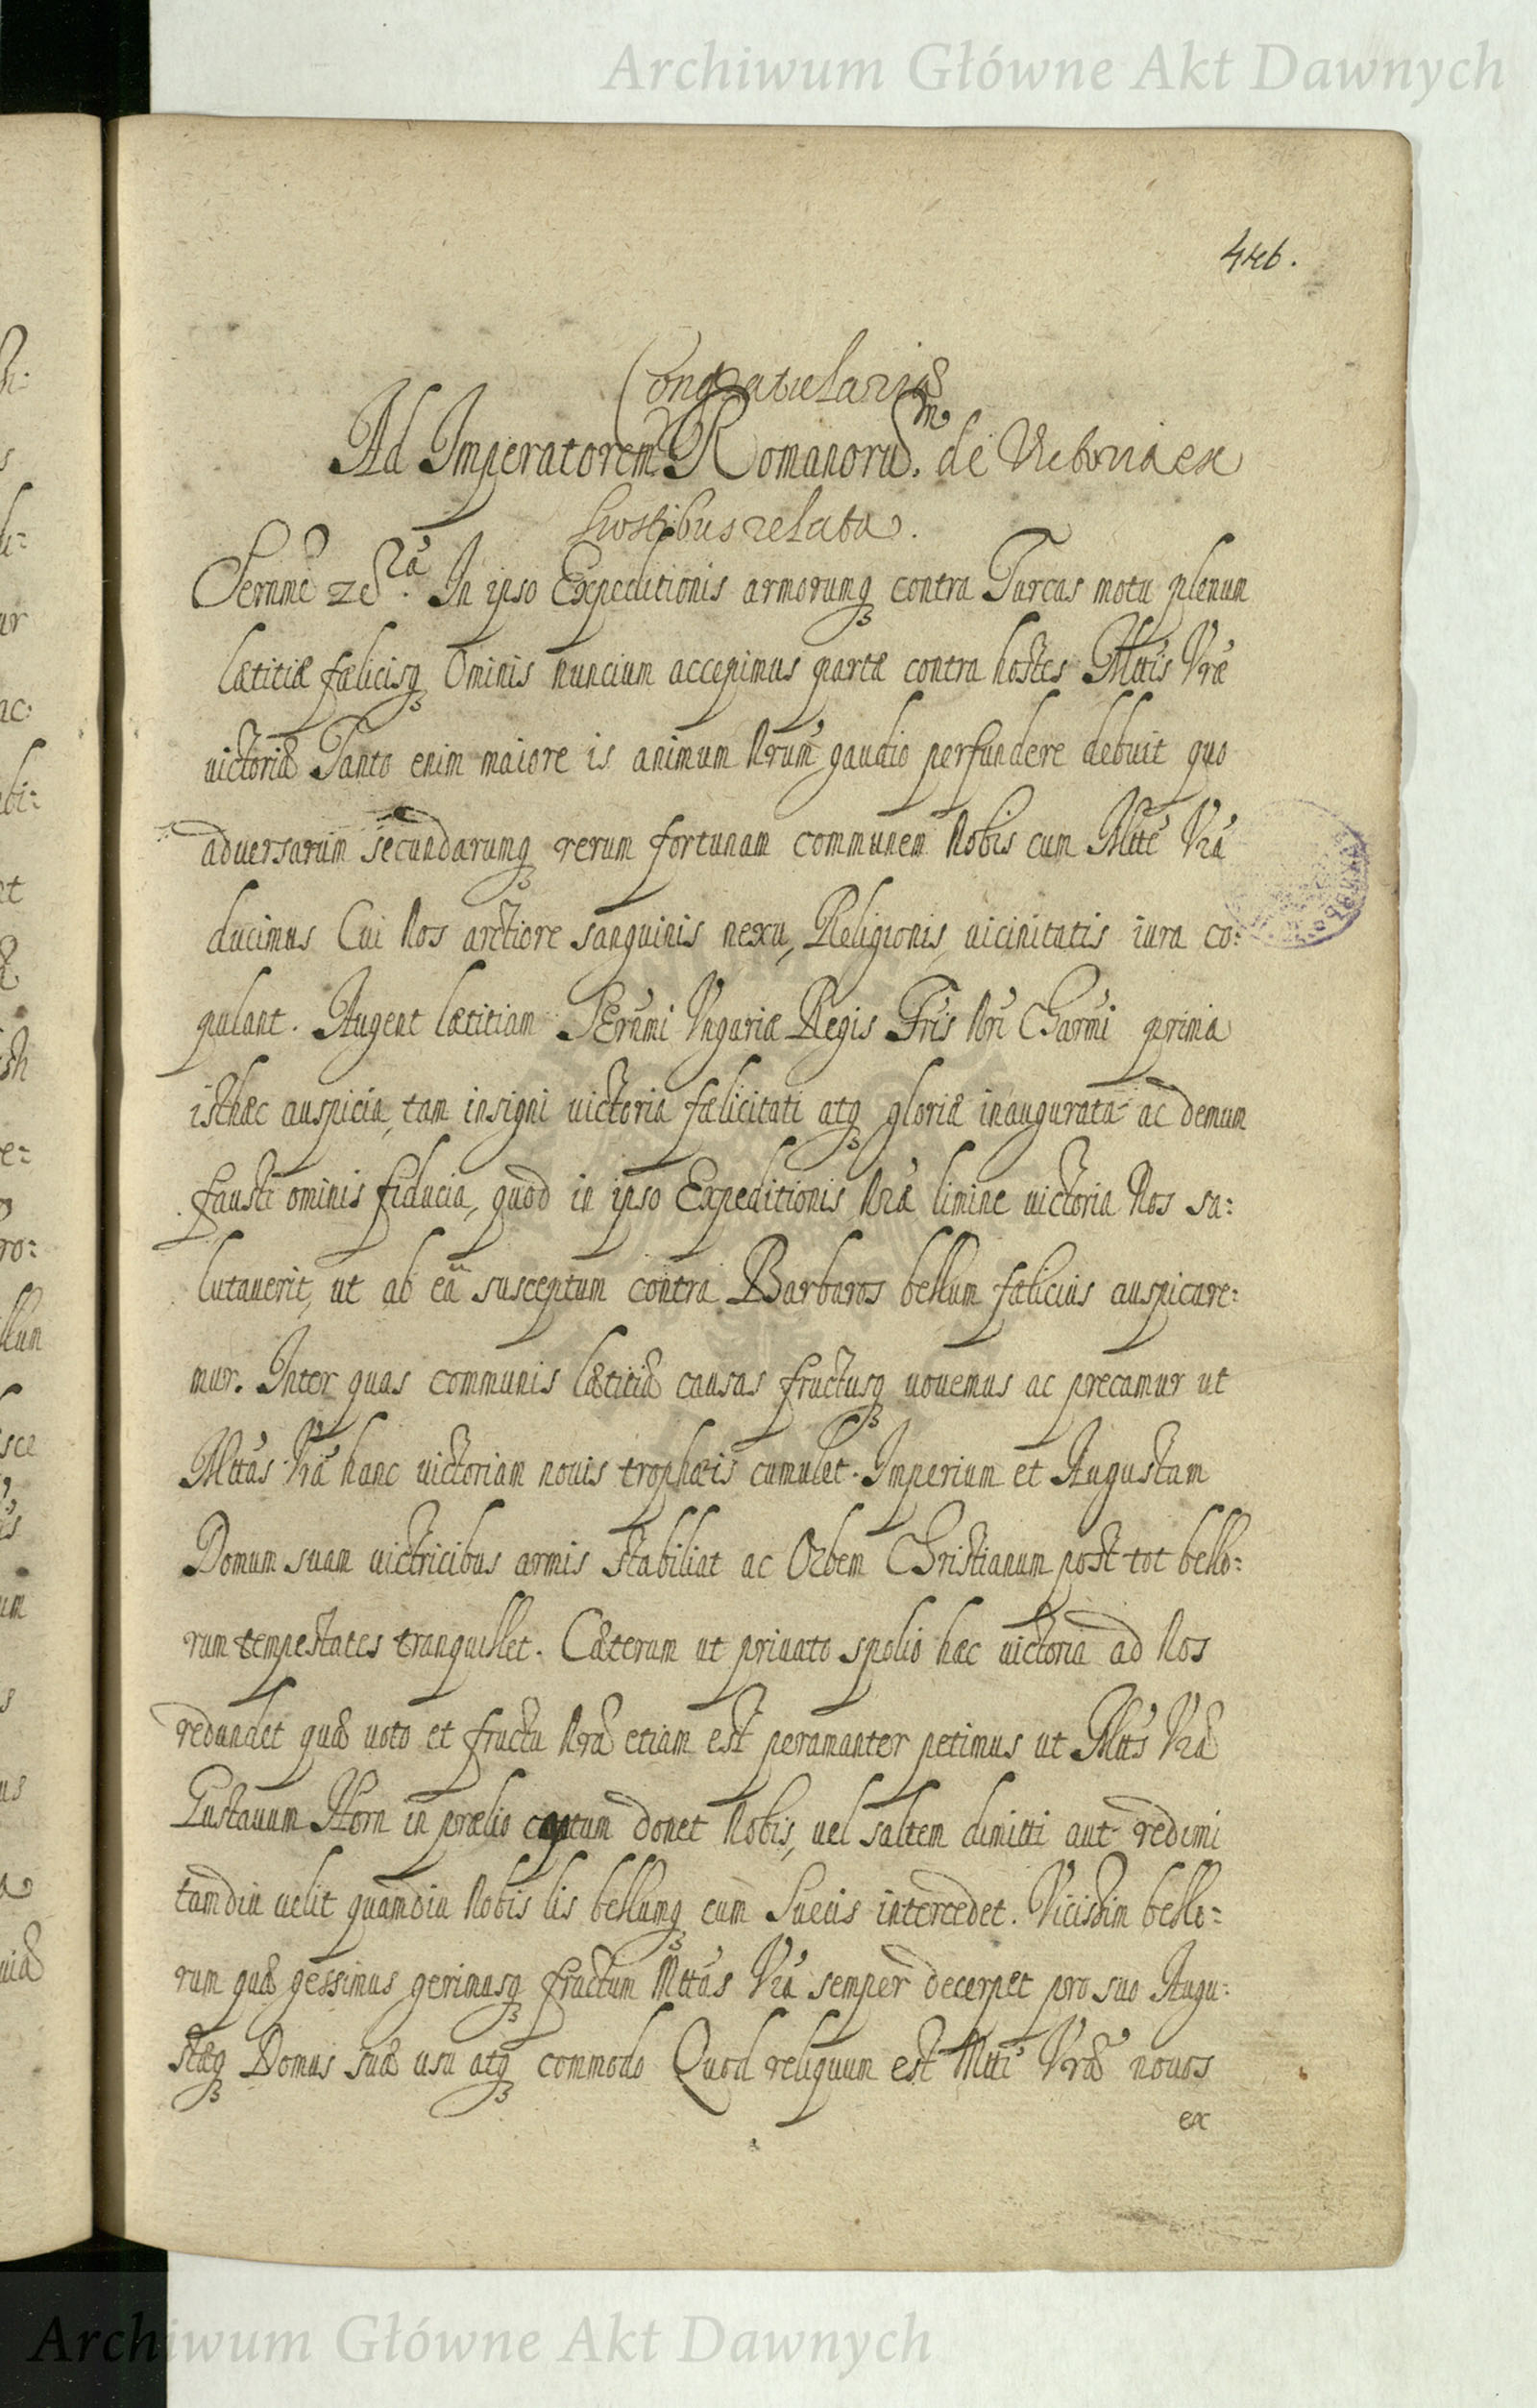 Archiwum Główne Akt Dawnych
Congratulatoriæ
Ad Imperatorem Romanorũ. de Victoria ex
hostibus relata.
Sernme etc. In ipso Expeditionis armorumq̃ contra Turcas motu plenum
lætitiæ fœlicisq̃ Ominis nuncium accepimus partæ contra hostes Mttis Vræ
victoriæ Tanto enim maiore is animum Nrum gaudio perfundere debuit quo
adversarum secundarumq̃ rerum fortunam communem Nobis cum Mtte Vrá
ducimus Cui Nos arctiore sanguinis nexu, Religionis, vicinitatis iura co:
pulant. Augent lætitiam Sernmi Vngariæ Regis Fris Nri Charmi prima
isthæc auspicia, tam insigni victoria fœlicitati atq̃ gloriæ inaugurata ac demum
fausti ominis fiducia, quod in ipso Expeditionis Nræ limine victoria Nos sa:
lutaverit, ut ab eâ susceptum contra Barbaros bellum fœlicius auspicare:
mur. Inter quas communis lætitiæ causas fructusq̃ vovemus ac precamur ut
Mttas Vrá hanc victoriam novis trophæis cumulet. Imperium et Augustam
Domum suam victricibus armis stabiliat ac Orbem Christianum post tot bello:
rum tempestates tranquillet. Cæterum ut privato spolio hæc victoria ad Nos
redundet quæ voto et fructu Nrá etiam est peramanter petimus ut Mtts Vrá
Gustavum Horn in prælio captum donet Nobis, vel saltem dimitti aut redimi
tamdiu velit quamdiu Nobis lis bellumq̃ cum Suecis intercedet. Vicissim bello:
rum quæ gessimus gerimusq̃ fructum Mttas Vrá semper decerpet pro suo Augu:
stæq̃ Domus suæ usu atq̃ commodo Quod reliquum est Mtti Vræ novos
ex
Archiwum Główne Akt Dawnych